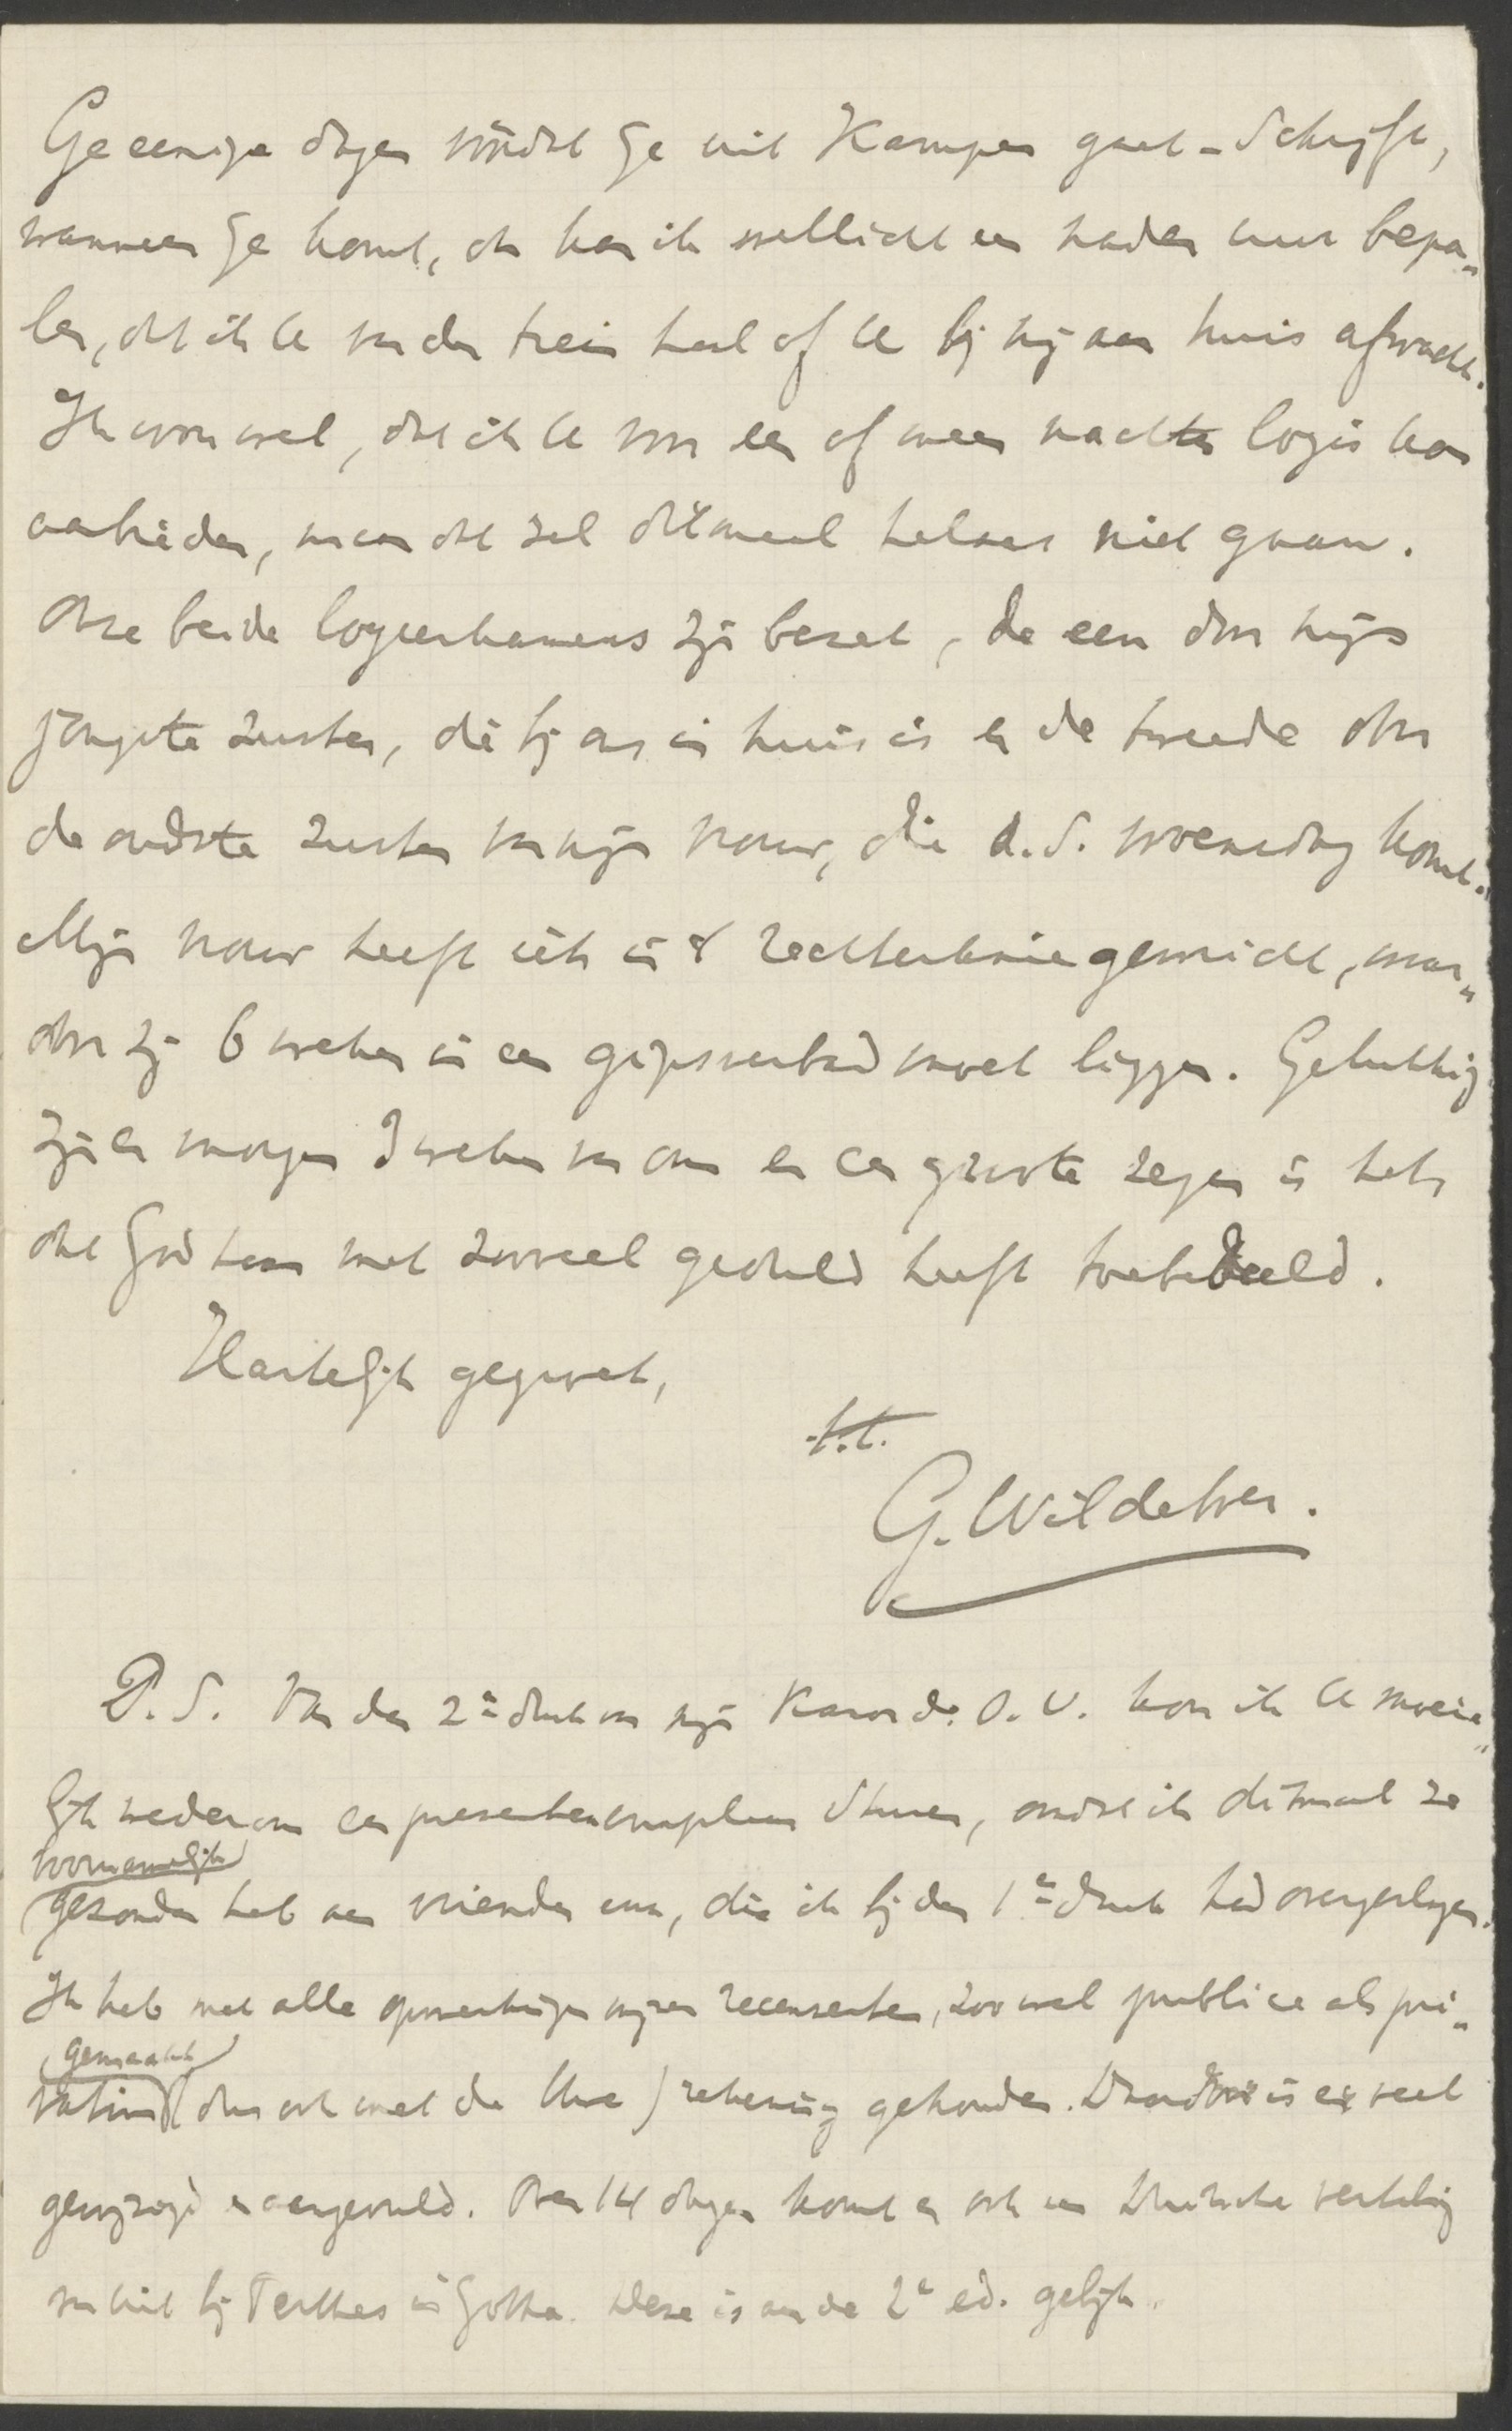 Ge eenige dagen vóórdat ge uit Kampen gaat - schrijft,
wanneer ge komt, dan kan ik wellicht een nader uur bepa„
len, dat ik U van den trein haal of U bij mij aan huis afwacht.
Ik wou wel, dat ik U voor een of meer nachten logis kon
aanbieden, maar dat zal ditmaal helaas niet gaan.
Onze beide logeerkamers zijn bezet, de een door mijn
jongste zuster, die bij ons in huis is en de tweede door
de oudste zuster van mijn vrouw, die a.s. woensdag komt.
Mijn vrouw heeft iets in d' rechterknie gewricht, waar„
door zij 6 weken in een gipsverband moet liggen. Gelukkig
zijn er morgen 3 weken van om en een groote zegen is het,
dat God haar met zooveel geduld heeft toebedeeld.
Hartelijk gegroet,
t.t.
G. Wildeboer.
P.S. Van den 2en druk van mijn Kanon d. O. V. kon ik U moeie„
lijk wederom een presentexemplaar sturen, omdat ik ditmaal ze
voornamelijk
gezonden heb aan vrienden enz, die ik bij den 1en druk had overgeslagen.
Ik heb met alle opmerkingen mijner recensenten, zoowel publice als pri„
gemaakt
vatim (dus ook met de Uwe) rekening gehouden. Daardoor is er veel
gewijzigd en aangevuld. Over 14 dagen komt er ook een Duitsche vertaling
van uit bij Perthes in Gotha. Deze is aan de 2e ed. gelijk.